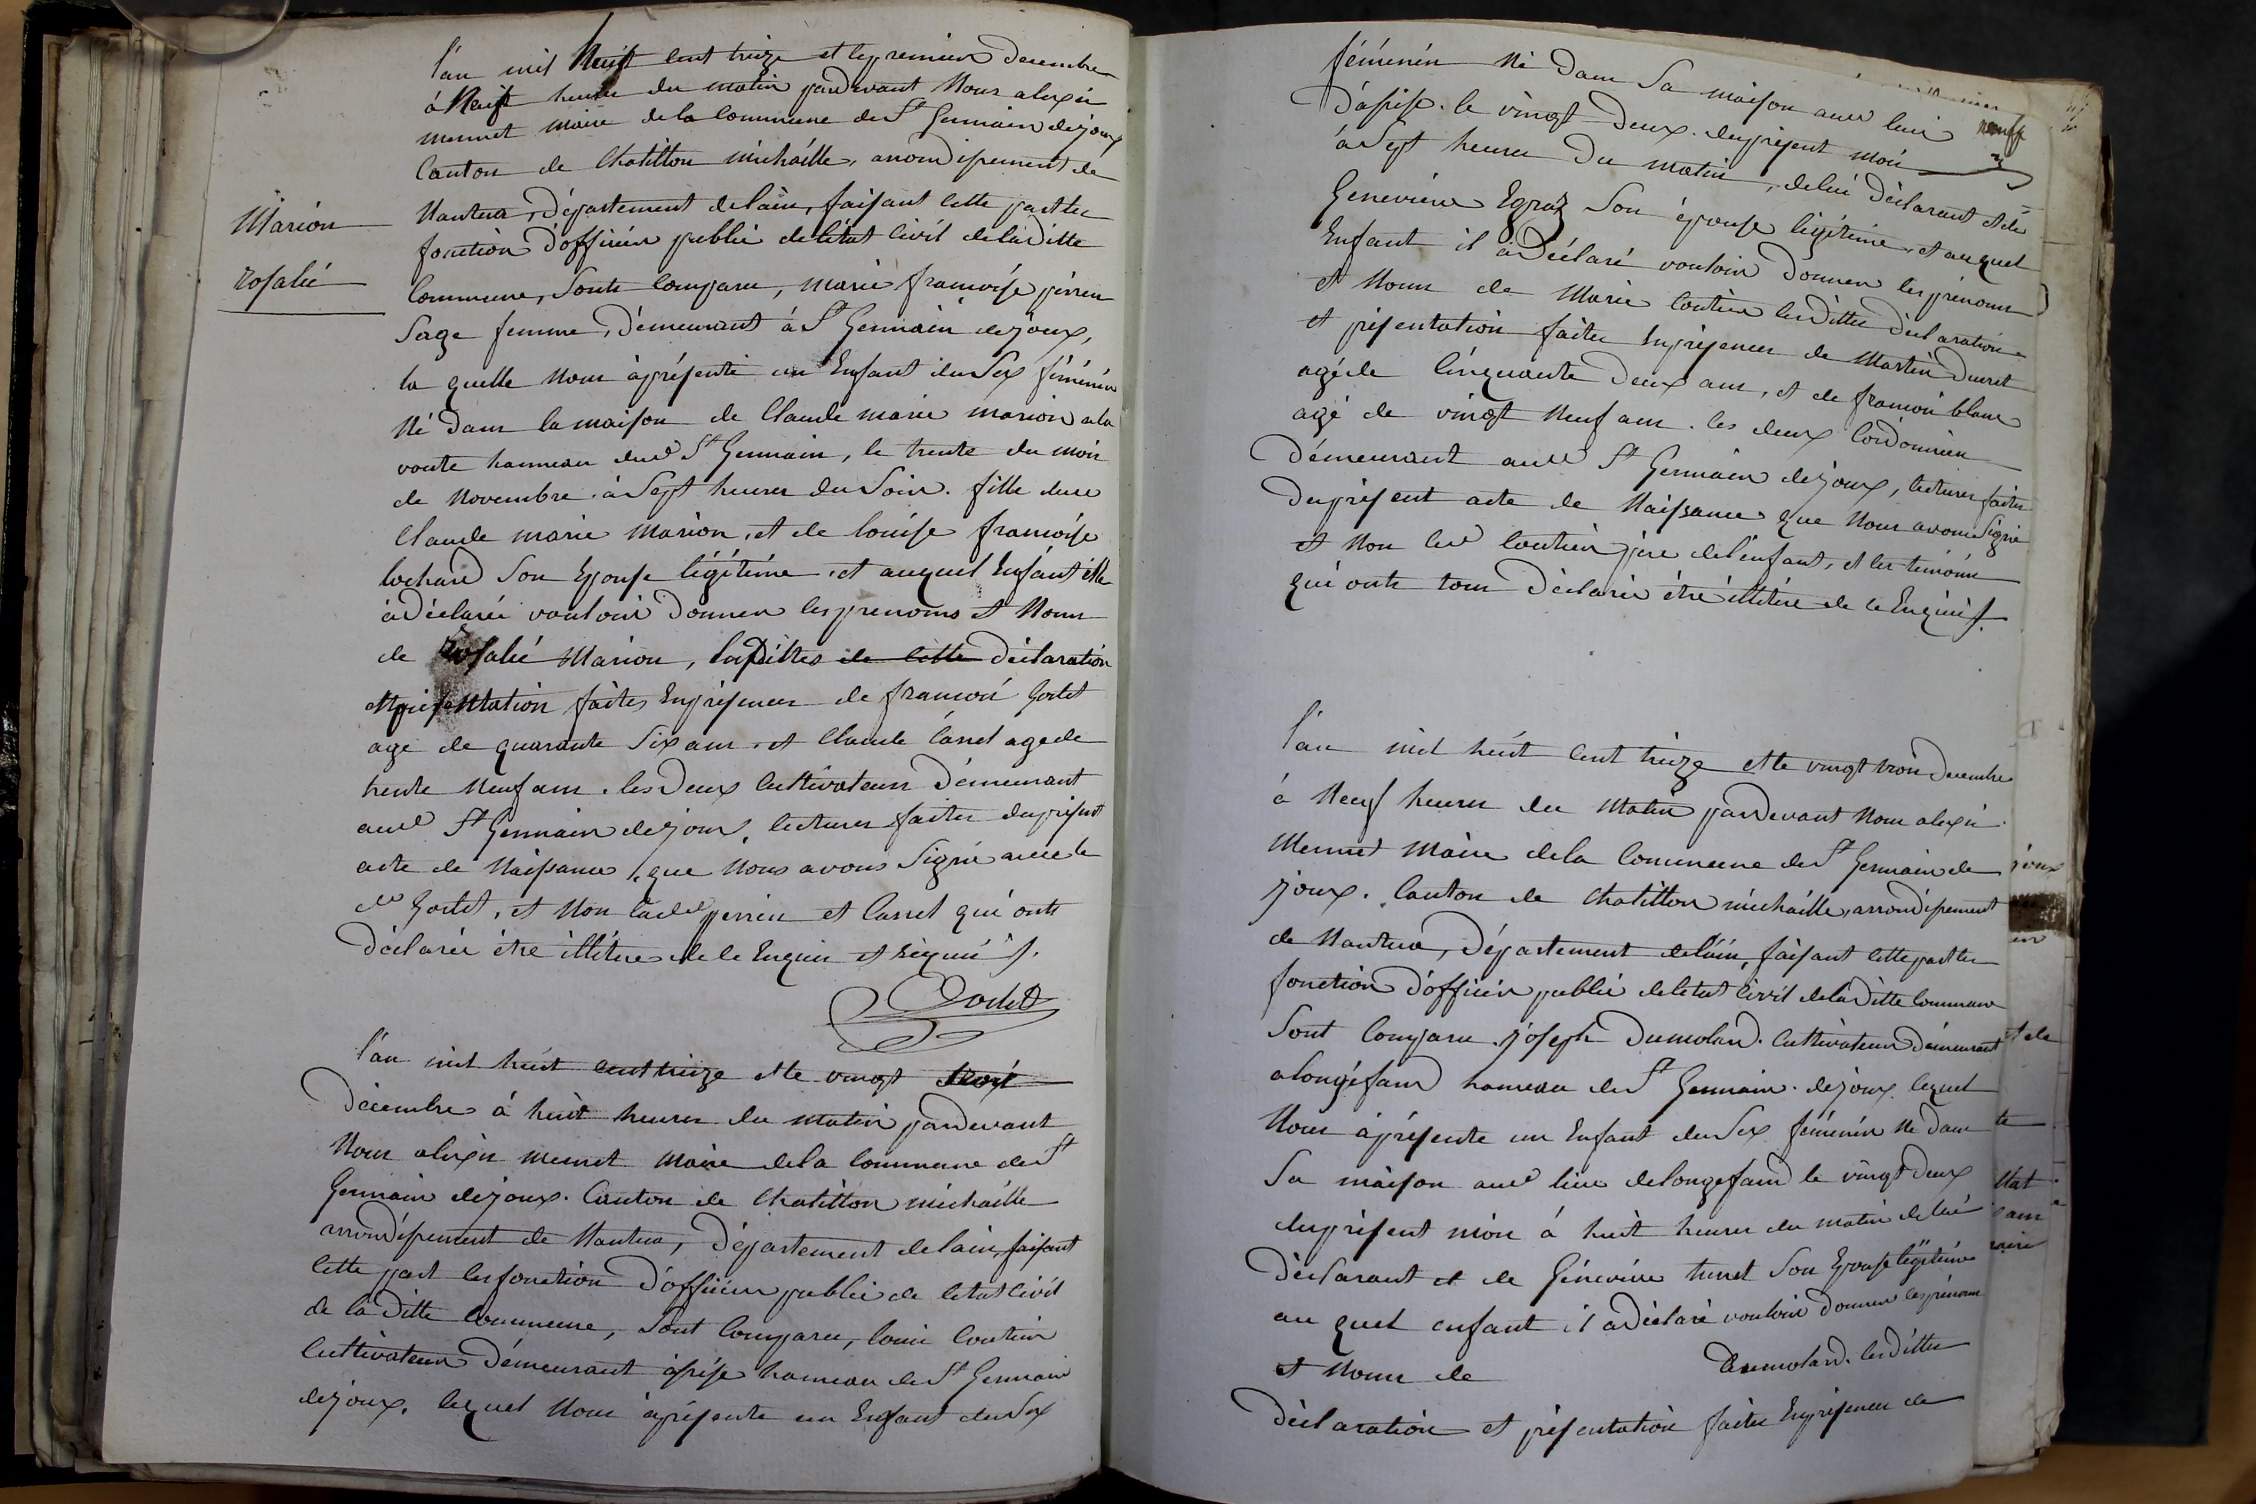 l'an mil huit cent treize et le premier decembre
à Neuf heures du matin pardevant Nous alexis
mermet maire de la Commune de St Germain dejoux
Canton de Chatillon michaille, arrondissement de
Nantua, Département delain, faisant cette part les
fonction d'officier public de létat civil de la ditte
Commune, Sont Comparu, marie francoise perrin
Sage femme, demeurant à St Germain de joux,
la quelle Nous à présenté un Enfant du Sex féménin
Né dans la maison de Claude marie marion a la
voute hameau dud St Germain, le trente du mois
de Novembre à Sept heures du Soir. fille dud
Claude marie Marion, et de louise francoise
lochard Son Epouse légitime, et auquel Enfant elle
à Déclaré vouloir Donner les prenoms et Noms
de Rosalie Marion, lesdittes de cette déclaration
et présentation faites En présence de francois Godet
agé de quarante Six ans, et Claude Carrel agé de
trente Neuf ans. les Deux Cultivateurs Démeurant
aud St Germain de joux, lectures faites du présent
acte de Naissance, que Nous avons Signé avec le
dd Godet, et Non ladd perrin et Carrel qui ont
Déclaré être illitéré de ce Enquis et requis ./.
Godet
Marion
rosalie
l'an mil huit cent treize et le vingt trois
Décembre à huit heures du matin pardevant
Nous alexis mermet maire dela Commune de St
Germain dejoux. Canton de Chatillon michaille
arrondissement de Nantua, Département delain, faisant
cette part les fonction d'officier public de létat civil
de la ditte Commune, Sont Comparu, louis Coutier
Cultivateur Démeurant hameau de St Germain
dejoux, lequel Nous à présente un Enfant du Sex
féménin Né dans Sa maison aud lieu
le vingt Deux du présent mois
à Sept heures Du matin, de lui Déclarant et de
Geneviève Egraz Son épouse légitime, et auquel
Enfant il à Déclaré vouloir Donner les prénoms
et Noms de Marie Coutier lesdittes déclaration
et présentation faites En présence de Martin Ducret
agé de Cinquante Deux ans, et de francois blanc
agé de vingt Neuf ans. les deux Cordonnier
Démeurant aud St Germain de joux, lectures faites
Du présent acte de Naissance que Nous avons Signé
et Non led Coutier père del'enfant, et les témoins
qui ont tous Déclaré être illitéré de ce Enquis ./.
l'an mil huit cent treize et le vingt trois Decembre
à Neuf heures du Matin pardevant Nous alexis
Mermet Maire dela Commune de St Germain de
joux. Canton de Chatillon michaille, arrondissement
de Nantua, Département delain, faisant cette part les
fonction d'officier public de létat civil de la ditte Commune
Sont Comparu joseph Dumolard. Cultivateur Démeurant
a longefand hameau de St Germain dejoux. lequel
Nous à présente un Enfant du Sex féménin Né dans
Sa maison aud lieu de longefand le vingt Deux
du présent mois à huit heures du matin de lui
Déclarant et de Généviève turret Son Epouse légitime
au quel enfant il a Déclaré vouloir Donner les prénoms
et Noms de Dumolard. lesdittes
Déclaration et présentation faites En présence de